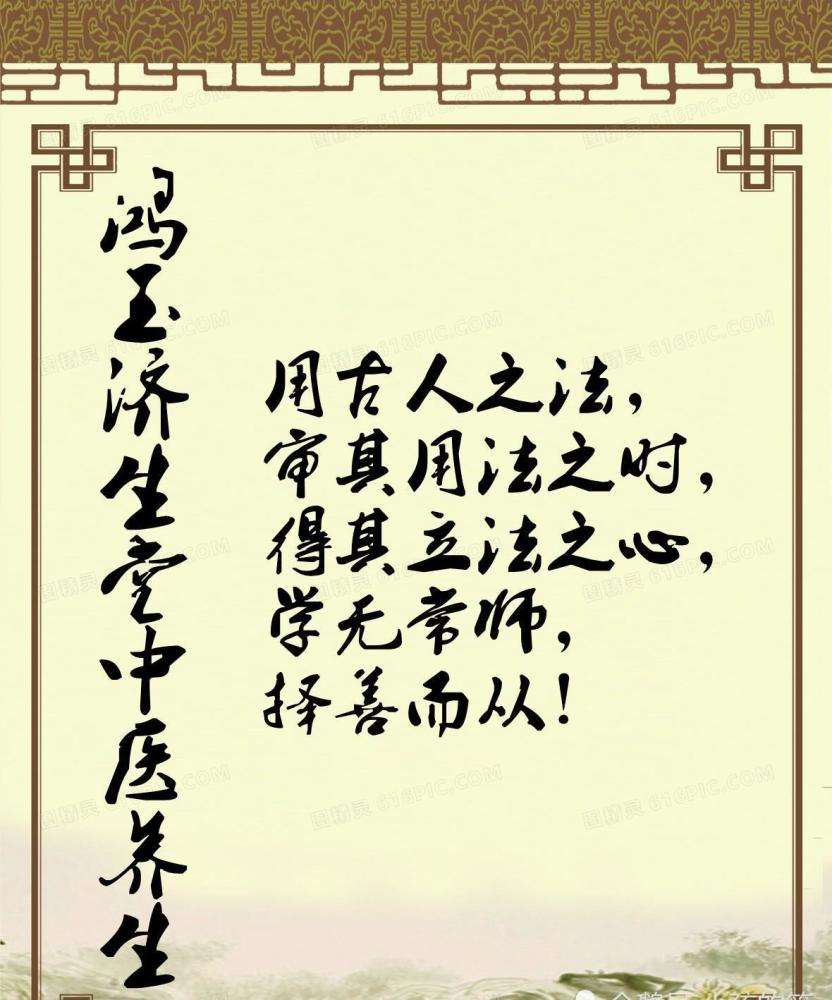 鸿玉济生堂中医养生
用古人之法，
审其用法之时，
得其立法之心，
学无常师，
择善而从！
图精灵 616PIC.COM